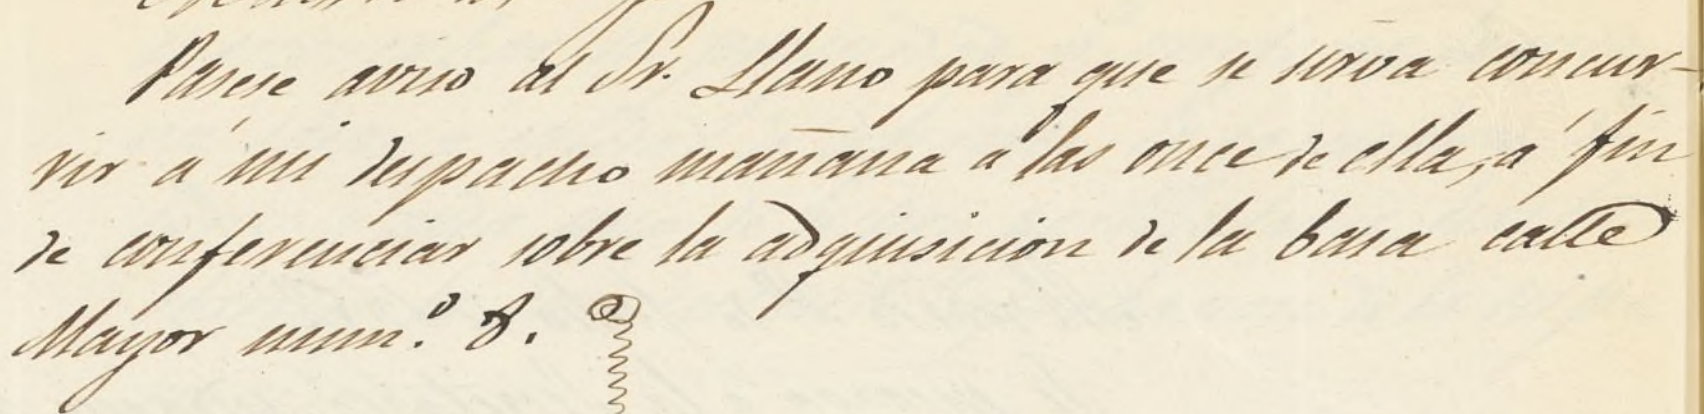 Pasese aviso al Sr. Llano para que se sirva concur-
rir á mi despacho mañana á las once de ella, á fin
de conferenciar sobre la adquisicion de la Casa calle
Mayor num.º 8.